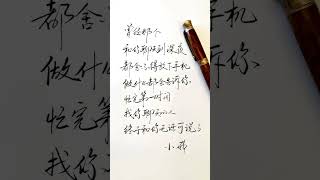 曾经那个
和你聊天到深夜
都舍不得放下手机
做什么都会告诉你
忙完第一时间
找你聊天的人
终于和你无话可说了